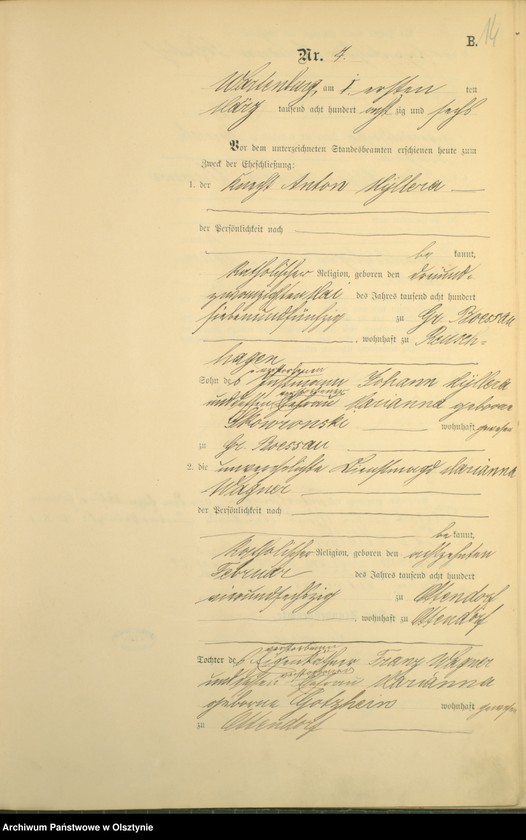 B. 14
Nr. 7.
Wartenburg, am 1. ersten ten
März tausend acht hundert achtzig und sechs
Vor dem unterzeichneten Standesbeamten erschienen heute zum
Zweck der Eheschließung:
1. der Knecht Anton
der Persönlichkeit nach
be kannt,
katholischer Religion, geboren den dreiund-
zwanzigsten Mai des Jahres tausend acht hundert
siebenundfünfzig zu Gr. Boessau
, wohnhaft zu Reusen-
hagen
verstorbenen
Sohn des Johann
und dessen Ehefrau Marianna geborene
Skowronski wohnhaft gewesen
zu Gr. Boessau
2. die unverehelichte Dienstmagd Marianna
Wagner
der Persönlichkeit nach
be kannt,
katholischer Religion, geboren den achtzehnten
Februar des Jahres tausend acht hundert
vierundsechzig zu Ottendorf
, wohnhaft zu Ottendorf
verstorbenen
Tochter des Eigenkäthner Franz Wagner
und dessen Ehefrau Marianna
geborene wohnhaft gewesen
zu Ottendorf
Archiwum Państwowe w Olsztynie